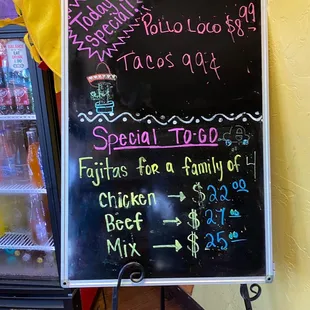 Today's
special!
Pollo Loco $8.99
Tacos 99¢
Special TO-GO
Fajitas for a family of 4
Chicken → $22.00
Beef → $27.00
Mix → $25.00